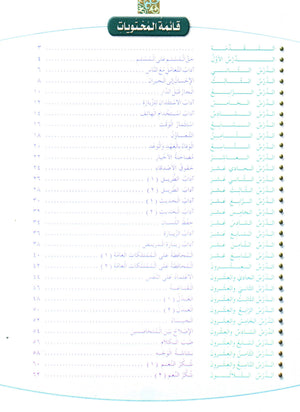 قائمة المحتويات
المقدمة ٣
الدرس الأول حق المسلم على المسلم ٤
الدرس الثاني آداب التعامل مع الناس ٦
الدرس الثالث الإحسان إلى الجيران ٨
الدرس الرابع ١٠
الدرس الخامس آداب الاستئذان للزيارة ١٢
الدرس السادس آداب استخدام الهاتف ١٤
الدرس السابع استثمار الوقت ١٦
الدرس الثامن التعاون ١٨
الدرس التاسع الوفاء بالعهد والوعد ٢٠
الدرس العاشر مصاحبة الأخيار ٢٢
الدرس الحادي عشر حقوق الأصدقاء ٢٤
الدرس الثاني عشر آداب الطريق (١)
الدرس الثالث عشر آداب الطريق (٢) ٢٨
الدرس الرابع عشر آداب الحديث (١) ٣٠
الدرس الخامس عشر آداب الحديث (٢) ٣٢
الدرس السادس عشر حفظ اللسان ٣٤
الدرس السابع عشر آداب الزيارة
الدرس الثامن عشر آداب زيارة المريض ٣٨
الدرس التاسع عشر المحافظة على الممتلكات العامة (١) ٤٠
الدرس العشرون المحافظة على الممتلكات العامة (٢) ٤٢
الدرس الحادي والعشرون الاعتماد على النفس ٤٤
الدرس الثاني والعشرون القناعة ٤٦
الدرس الثالث والعشرون العدل (١) ٤٨
الدرس الرابع والعشرون العدل (٢) ٥٠
الدرس الخامس والعشرون الحياء ٥٢
الدرس السادس والعشرون الإصلاح بين المتخاصمين ٥٤
الدرس السابع والعشرون طيب الكلام ٥٦
الدرس الثامن والعشرون بشاشة الوجه ٥٨
الدرس التاسع والعشرون شكر النعم (١) ٦٠
الدرس الثلاثون شكر النعم (٢) ٦٢